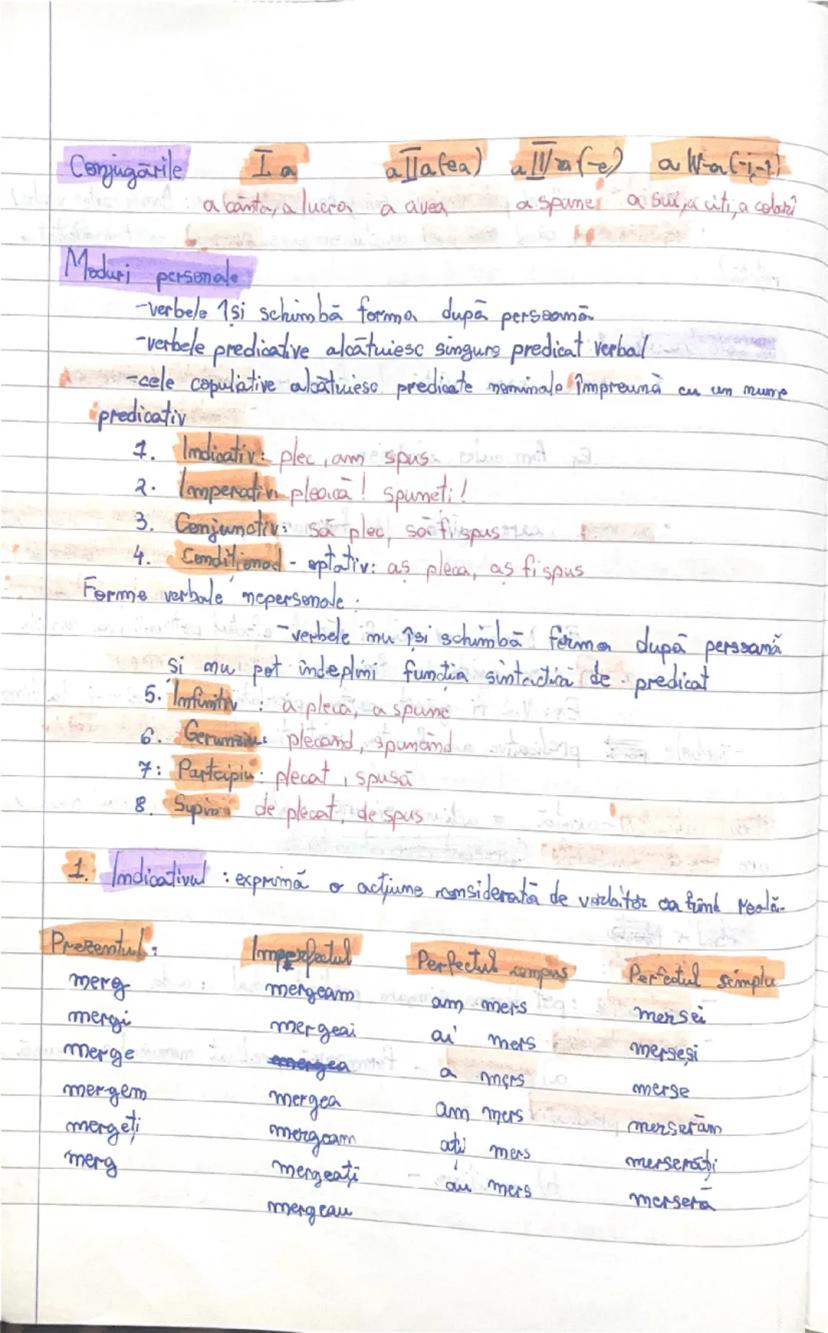 Conjugările I a a II a (ea) a III a (-e) a IV-a (-i,-î)
a cânta, a lucra, a avea a spune a sui, a citi, a coborî
Moduri personale
-verbele își schimbă forma după persoană
-verbele predicative alcătuiesc singure predicat verbal
-cele copulative alcătuiesc predicate nominale împreună cu un nume
predicativ
1. Indicativ: plec, am spus
2. Imperativ: pleacă! spuneți!
3. Conjunctiv: să plec, să fi spus
4. Condițional - optativ: aș pleca, aș fi spus
Forme verbale nepersonale:
-verbele nu își schimbă forma după persoană
și nu pot îndeplini funcția sintactică de predicat
5. Infinitiv: a pleca, a spune
6. Gerunziu: plecând, spunând
7: Participiu: plecat, spusă
8. Supin: de plecat, de spus
1. Indicativul: exprimă o acțiune considerată de vorbitor ca fiind reală.
Prezentul: Imperfectul Perfectul compus Perfectul simplu
merg mergeam am mers mersei
mergi mergeai ai mers merseși
merge mergea a mers merse
mergem mergea am mers merserăm
mergeți mergeam ați mers merserăți
merg mergeați au mers merseră
mergeau